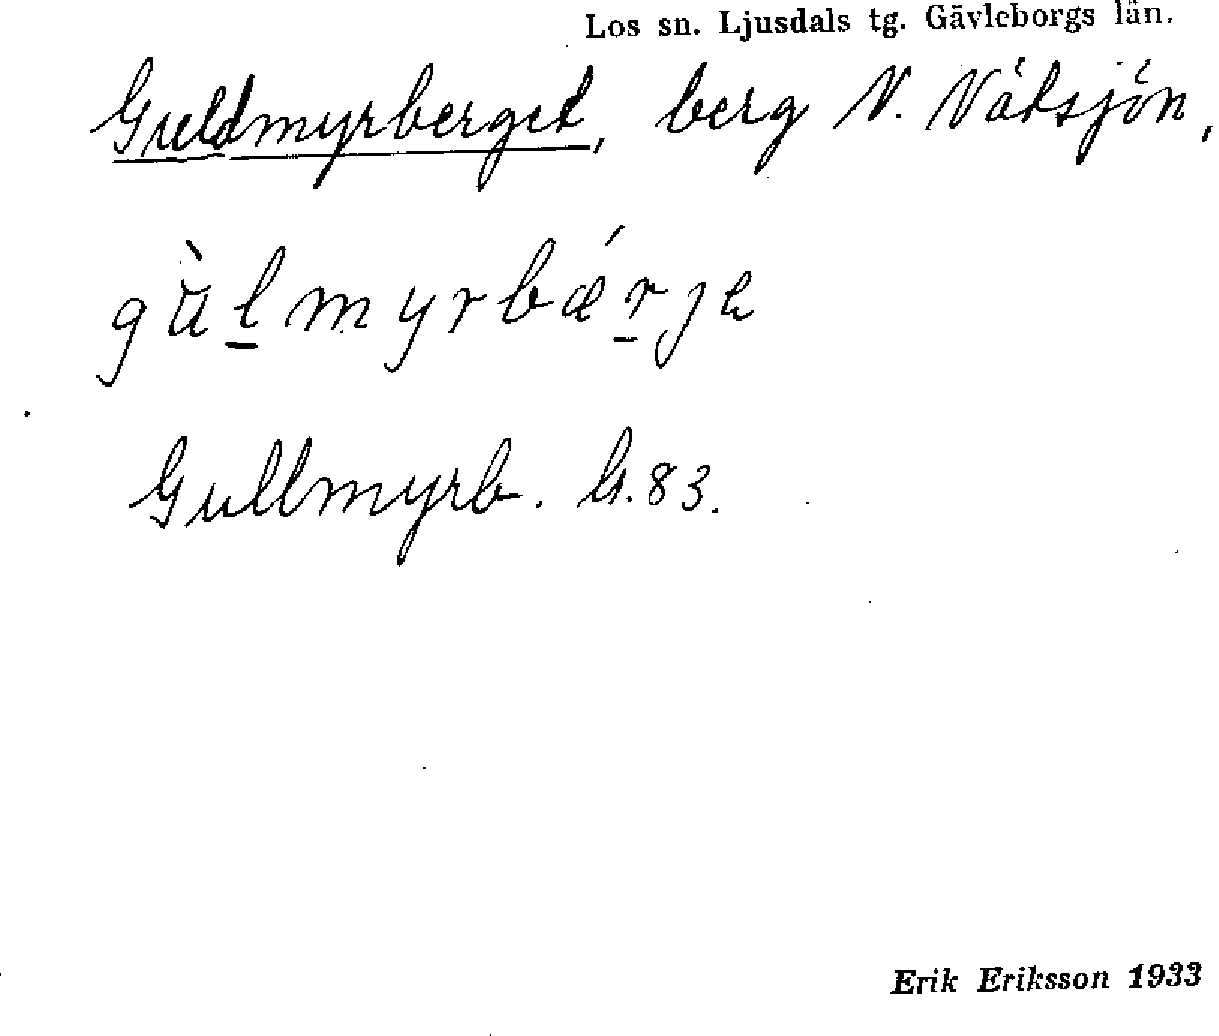 Los sn. Ljusdals tg. Gävleborgs län.
Guldmyrberget, berg N. Våtsjön,
gùl̲myrbǽr̲je
Gullmyrb. G.83.
Erik Eriksson 1933